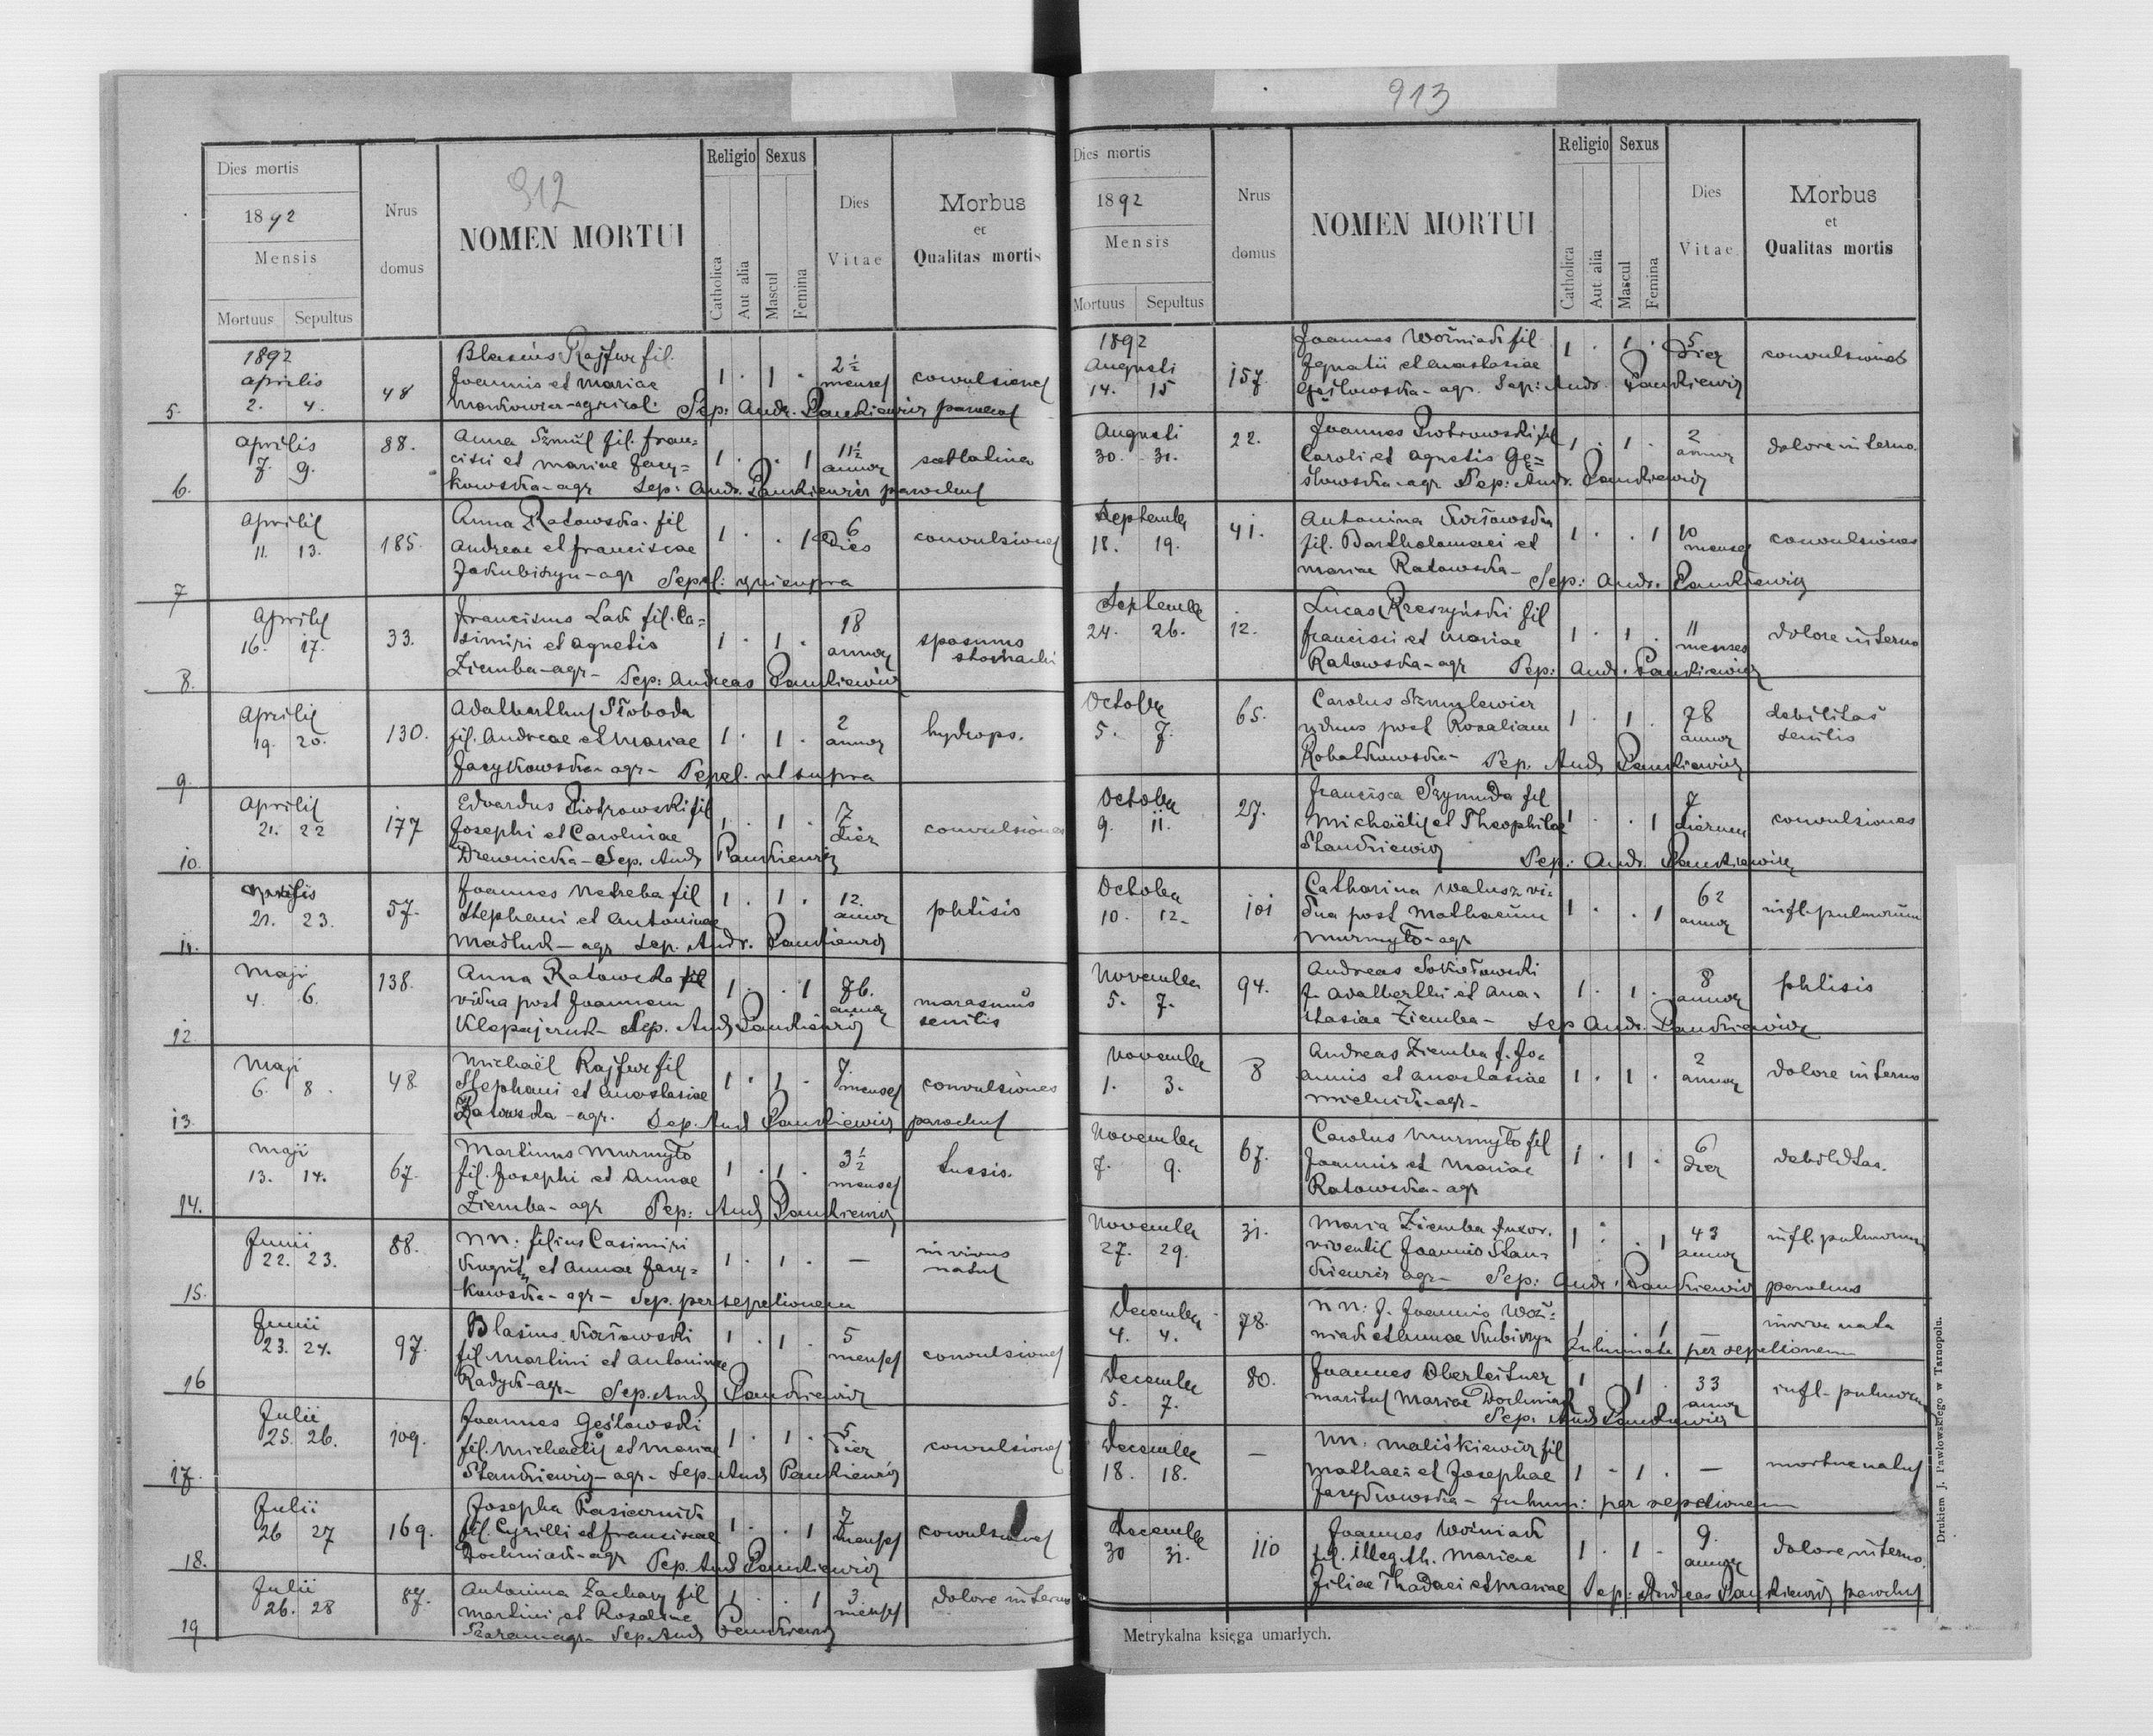 912
Dies mortis
1892
Mensis
Mortuus Sepultus
Nrus domus
NOMEN MORTUI
Religio Sexus
Catholica
Aut alia
Mascul
Femina
Dies Vitae
Morbus
et
Qualitas mortis
1892
Aprilis
2. 4.
5.
48
Blasius Rajfur fil.
Joannis et Mariae
1 . 1 .
2½ menses
convulsiones
Sep: Andr. Pankiewicz parochus
Aprilis
7. 9.
6.
88.
Anna Szmul fil. Fran=
cisci et Mariae Jary=
kowska - agr Sep: Andr. Pankiewicz parochus
1 . . 1
11½ annor
Aprilis
11. 13.
7
185.
Anna Ratowska fil
Andreae et Franciscae
Jakubiszyn - agr Sepel: ut supra
1 . . 1
6 dies
convulsiones
Aprilis
16. 17.
8.
33.
Franciscus Lach fil. Ca=
simiri et Agnetis
Ziemba - agr - Sep: Andreas Pankiewicz
1 . 1 .
18 annor
spasmus
stomachi
Aprilis
19. 20.
9
130.
Adalberthus Słoboda
fil. Andreae et Mariae
Jarykowska - agr - Sepel. ut supra
1 . 1 .
2 annor
hydrops.
Aprilis
21. 22
10.
177
Edvardus Piotrowski fil
Josephi et Carolinae
Drewnicka - Sep. Andr Pankiewicz
1 . 1 .
7 dier
convulsiones
Aprilis
21. 23.
11.
57.
Joannes Netreba fil
Stephani et Antoninae
agr Sep. Andr. Pankiewicz
1 . 1 .
12. annor
phtisis
Maji
4. 6.
12.
138.
Anna Ratowska fil
vidua post Joannem
Sep. Andr Pankiewicz
1 . . 1
76. annor
marasmus
senilis
Maji
6. 8.
13.
48
Michaël Rajfur fil
Stephani et Anastasiae
Ratowska - agr. Sep. And Pankiewicz parochus
1 . 1 .
7. menses
convulsiones
Maji
13. 14.
14.
67.
Martinus Murmyło
fil. Josephi et Annae
Ziemba - agr Sep: And Pankiewicz
1 . 1 .
3½ menses
tussis.
Junii
22. 23.
15.
88.
NN: filius Casimiri
et Annae Jary=
kowska - agr - Sep. per sepetionem
1 . 1 .
—
natus
Junii
23. 24.
16
97.
Blasius
fil. Martini et Antoninae
Radyk - agr - Sep. And Pankiewicz
1 . 1 .
5 menses
convulsiones
Julii
25. 26.
17.
109.
Joannes Gęsłowski
fil. Michaëlis et Mariae
Stankiewicz - agr - Sep. And Pankiewicz
1 . 1 .
5 dier
convulsiones
Julii
26 27
18.
169.
Josepha
fil. Cyrilli et Franciscae
Dochniak - agr Sep. And Pankiewicz
1 . . 1
7 menses
convulsiones
Julii
26. 28
19
87.
Antonina Zachary fil
Martini et Rosaliae
agr - Sep And Pankiewicz
1 . . 1
3 menses
dolore interno
913
Dies mortis
1892
Mensis
Mortuus Sepultus
Nrus domus
NOMEN MORTUI
Religio Sexus
Catholica
Aut alia
Mascul
Femina
Dies Vitae
Morbus
et
Qualitas mortis
1892
Augusti
14. 15
157.
Joannes Woźniak fil
Ignatii et Anastasiae
Gęsłowska - agr. Sep: Andr. Pankiewicz
1 . 1 .
5 dier
convulsiones
Augusti
30. 31.
22.
Joannes Piotrowski fil
Caroli et Agnetis Gę=
słowska - agr Sep: Andr. Pankiewicz
1 . 1 .
2 annor
dolore interno
Septembr
18. 19.
41.
Antonina
fil. Bartholomaei et
Mariae Ratowska -
Sep: Andr. Pankiewicz
1 . . 1
10 menses
convulsiones
Septembr
24. 26.
12.
Lucas Rzeszyński fil
Francisci et Mariae
Ratowska - agr Sep: Andr. Pankiewicz
1 . 1 .
11 menses
dolore interno
Octobr
5. 7.
65.
Carolus Szmulewicz
viduus post Rosaliam
Sep. Andr Pankiewicz
1 . 1 .
78 annor
debilitas
senilis
Octobr
9. 11.
27.
Francisca Szymuda fil
Michaëlis et Theophilae
Stankiewicz
Sep: Andr. Pankiewicz
1 . . 1
7 dierum
convulsiones
Octobr
10. 12.
101
Catharina Walusz vi=
dua post Mathaeum
Murmyło - agr
1 . . 1
62 annor
infl. pulmonum
Novembr
5. 7.
94.
Andreas Sokołowski
f. Adalberthi et Ana=
stasiae Ziemba - Sep Andr. Pankiewicz
1 . 1 .
8 annor
phtisis
Novembr
1. 3.
8
Andreas Ziemba f. Jo=
annis et Anastasiae
1 . 1 .
2 annor
dolore interno
Novembr
7. 9.
67.
Carolus Murmyło fil
Joannis et Mariae
Ratowska - agr
1 . 1 .
6 dier
debilitas.
Novembr
27. 29.
31.
Maria Ziemba uxor.
viventis Joannis Stan=
kiewicz agr - Sep: Andr. Pankiewicz parochus
1 . . 1
43 annor
infl. pulmonum
Decembr
4. 4.
78.
NN: f. Joannis Woź=
niak et Annae
per sepetionem
nata
Decembr
5. 7.
80.
Joannes Oberleitner
maritus Mariae Dochniak
Sep. And Pankiewicz
1 1 .
33 annor
infl. pulmonum
Decembr
18. 18.
—
NN. Maliśkiewicz fil
Mathaei et Josephae
Jarykowska - inhum: per sepetionem
1 - 1 .
—
mortue natus
Decembr
30 31.
110
Joannes Woźniak
fil. illegth. Mariae
filiae Thadaei et Mariae Sep: Andreas Pankiewicz parochus
1 . 1 .
9. annor
dolore interno.
Metrykalna księga umarłych.
Drukiem J. Pawłowskiego w Tarnopolu.